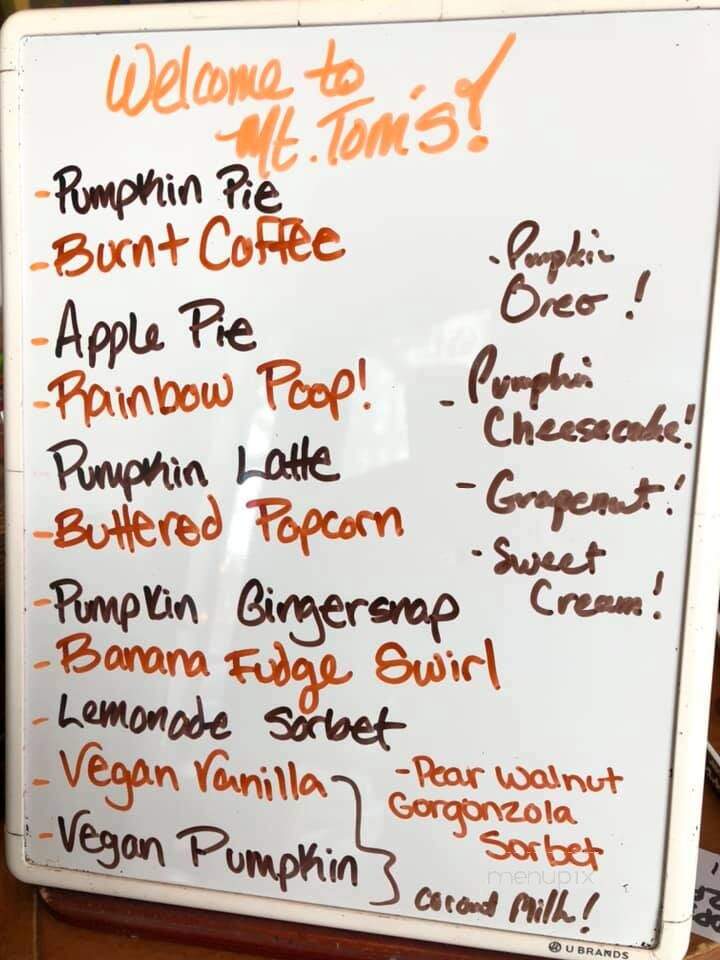 Welcome to
Mt. Tom's!
- Pumpkin Pie
- Burnt Coffee
- Apple Pie
- Rainbow Poop!
- Pumpkin Latte
- Buttered Popcorn
- Pumpkin Gingersnap
- Banana Fudge Swirl
- Lemonade Sorbet
- Vegan Vanilla
- Vegan Pumpkin
- Pumpkin
Oreo!
- Pumpkin
Cheesecake!
- Grapenut!
- Sweet
Cream!
- Pear Walnut
Gorgonzola
Sorbet
Coconut Milk!
menupix
U BRANDS